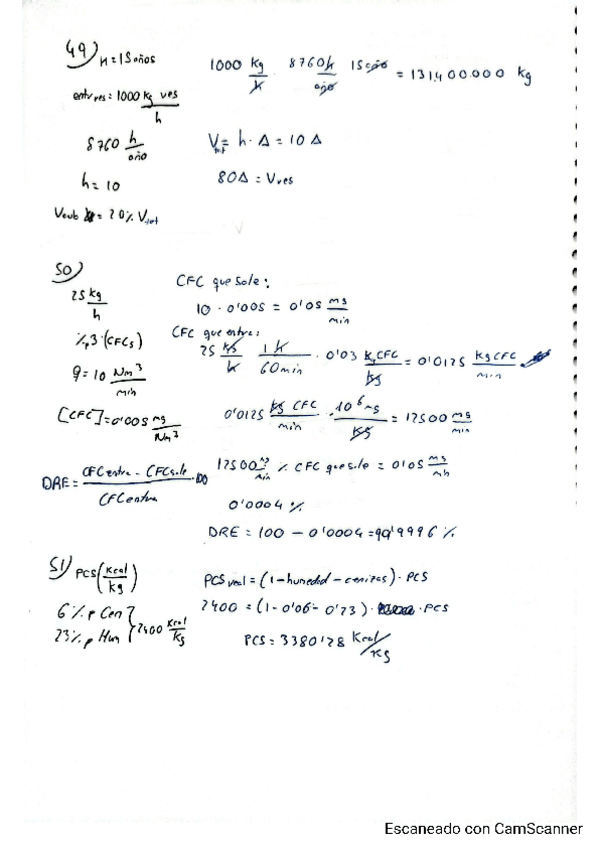 49) n=15 años
1000 kg/h · 8760 h/año · 15 años = 131400000 kg
entr res = 1000 kg res/h
8760 h/año
V tot = h · Δ = 10 Δ
h = 10
80Δ = Vres
Vcub = 20% Vtot
50)
25 kg/h
CFC que sale:
10 · 0'005 = 0'05 mg/min
%3 (CFCs)
CFC que entra:
25 kg/h · 1h/60min · 0'03 kgCFC/kg = 0'0125 kgCFC/min
q = 10 Nm³/min
[CFC] = 0'005 mg/Nm³
0'0125 kg CFC/min · 10⁶ mg/kg = 12500 mg/min
DRE = CFCentra - CFCsale/CFCentra · 100
12500 mg/min % CFC que sale = 0'05 mg/min
0'0004 %
DRE = 100 - 0'0004 = 99'9996 %
51) PCS (kcal/kg)
PCS real = (1 - humedad - cenizas) · PCS
6% p Cen
23% p Hum } 2400 kcal/kg
2400 = (1 - 0'06 - 0'23) · PCS
PCS = 3380'28 Kcal/Kg
Escaneado con CamScanner